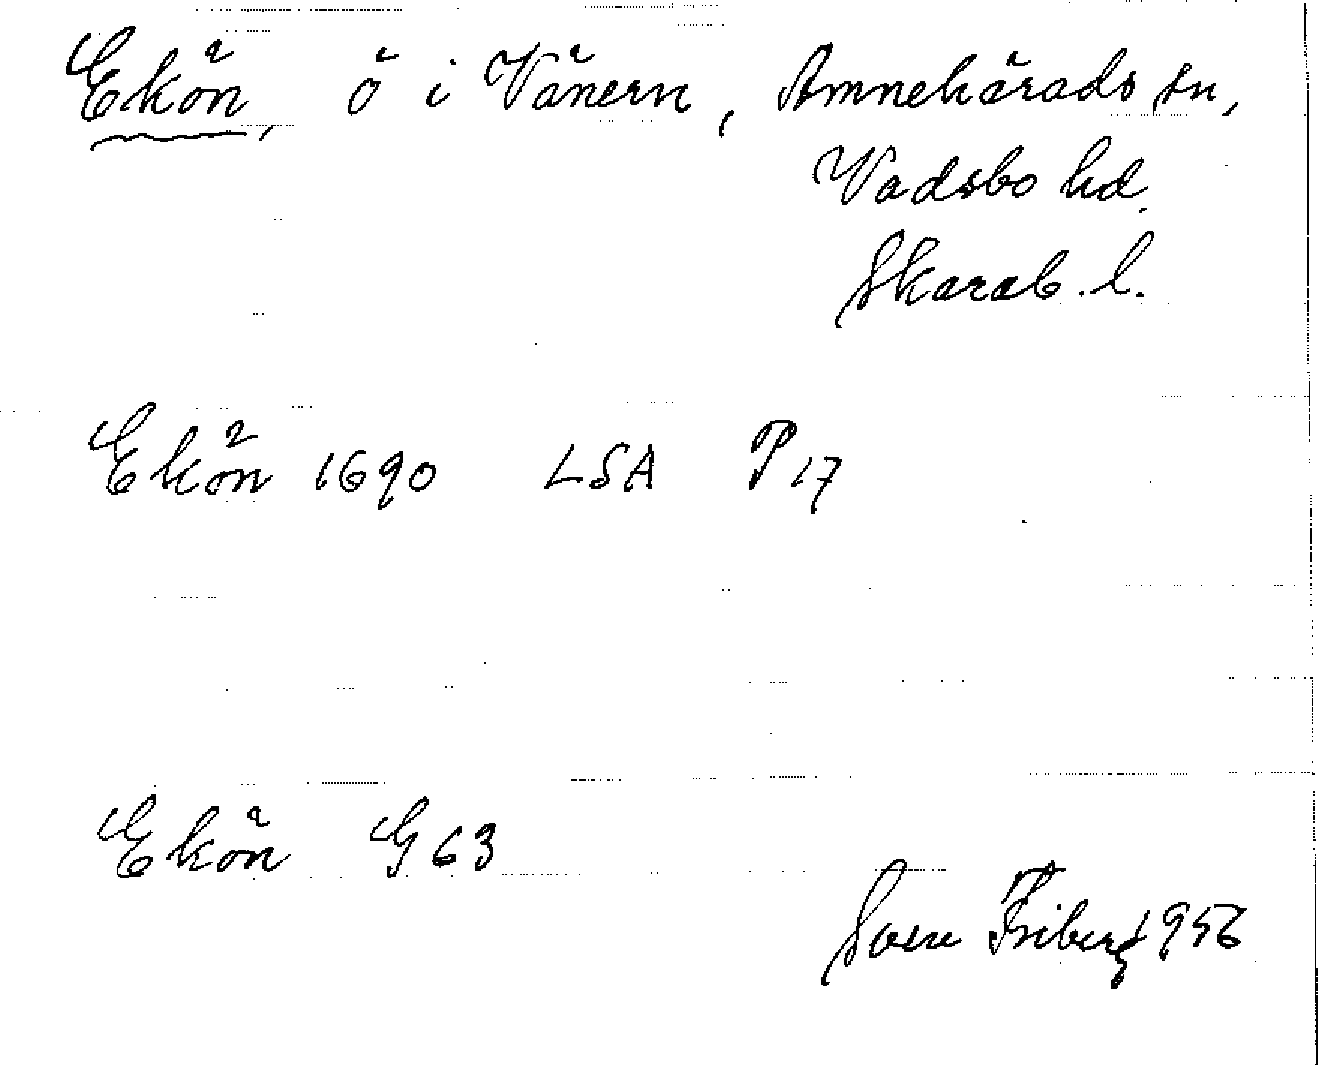 Ekön, ö i Vänern, Amnehärads sn,
Vadsbo hd.
Skarab. l.
Ekön 1690 LSA P 17
Ekön G 63
Sven Friberg 1956